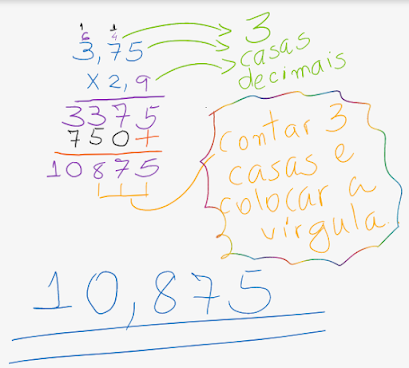 1 1
6 4
3,75
X 2,9
3375
750+
10875
3
casas
decimais
contar 3
casas e
colocar a
vírgula.
10,875